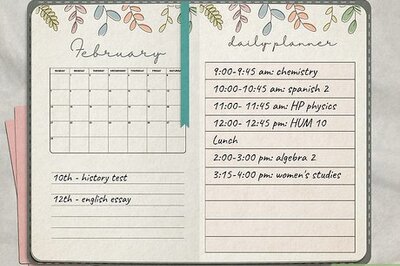 February
SUNDAY MONDAY TUESDAY WEDNESDAY THURSDAY FRIDAY SATURDAY
10th - history test
12th - english essay
daily planner
9:00-9:45 am: chemistry
10:00-10:45 am: spanish 2
11:00- 11:45 am: HP physics
12:00- 12:45 pm: HUM 10
Lunch
2:00-3:00 pm: algebra 2
3:15-4:00 pm: women's studies